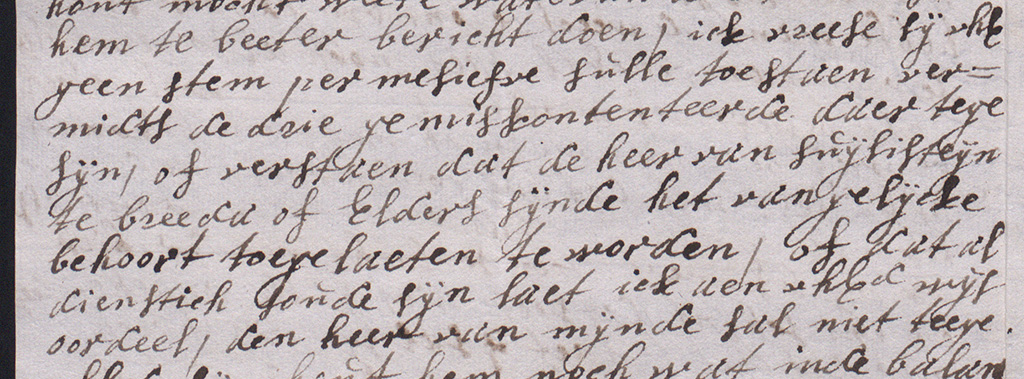 hem te beeter bericht doen, ick vreese sy
geen stem per mesiefve sulle toestaen ver=
midts de drie gemiskontenteerde daer tege
syn, of verstaen dat de heer van suÿlisteÿn
te breeda of Elders sÿnde het van gelÿcke
behoort toegelaeten te worden, of dat al
dienstich soude sÿn laet ick aen wys
oordeel, den heer van mÿnde sal niet teege.
hem noch wat inde balan